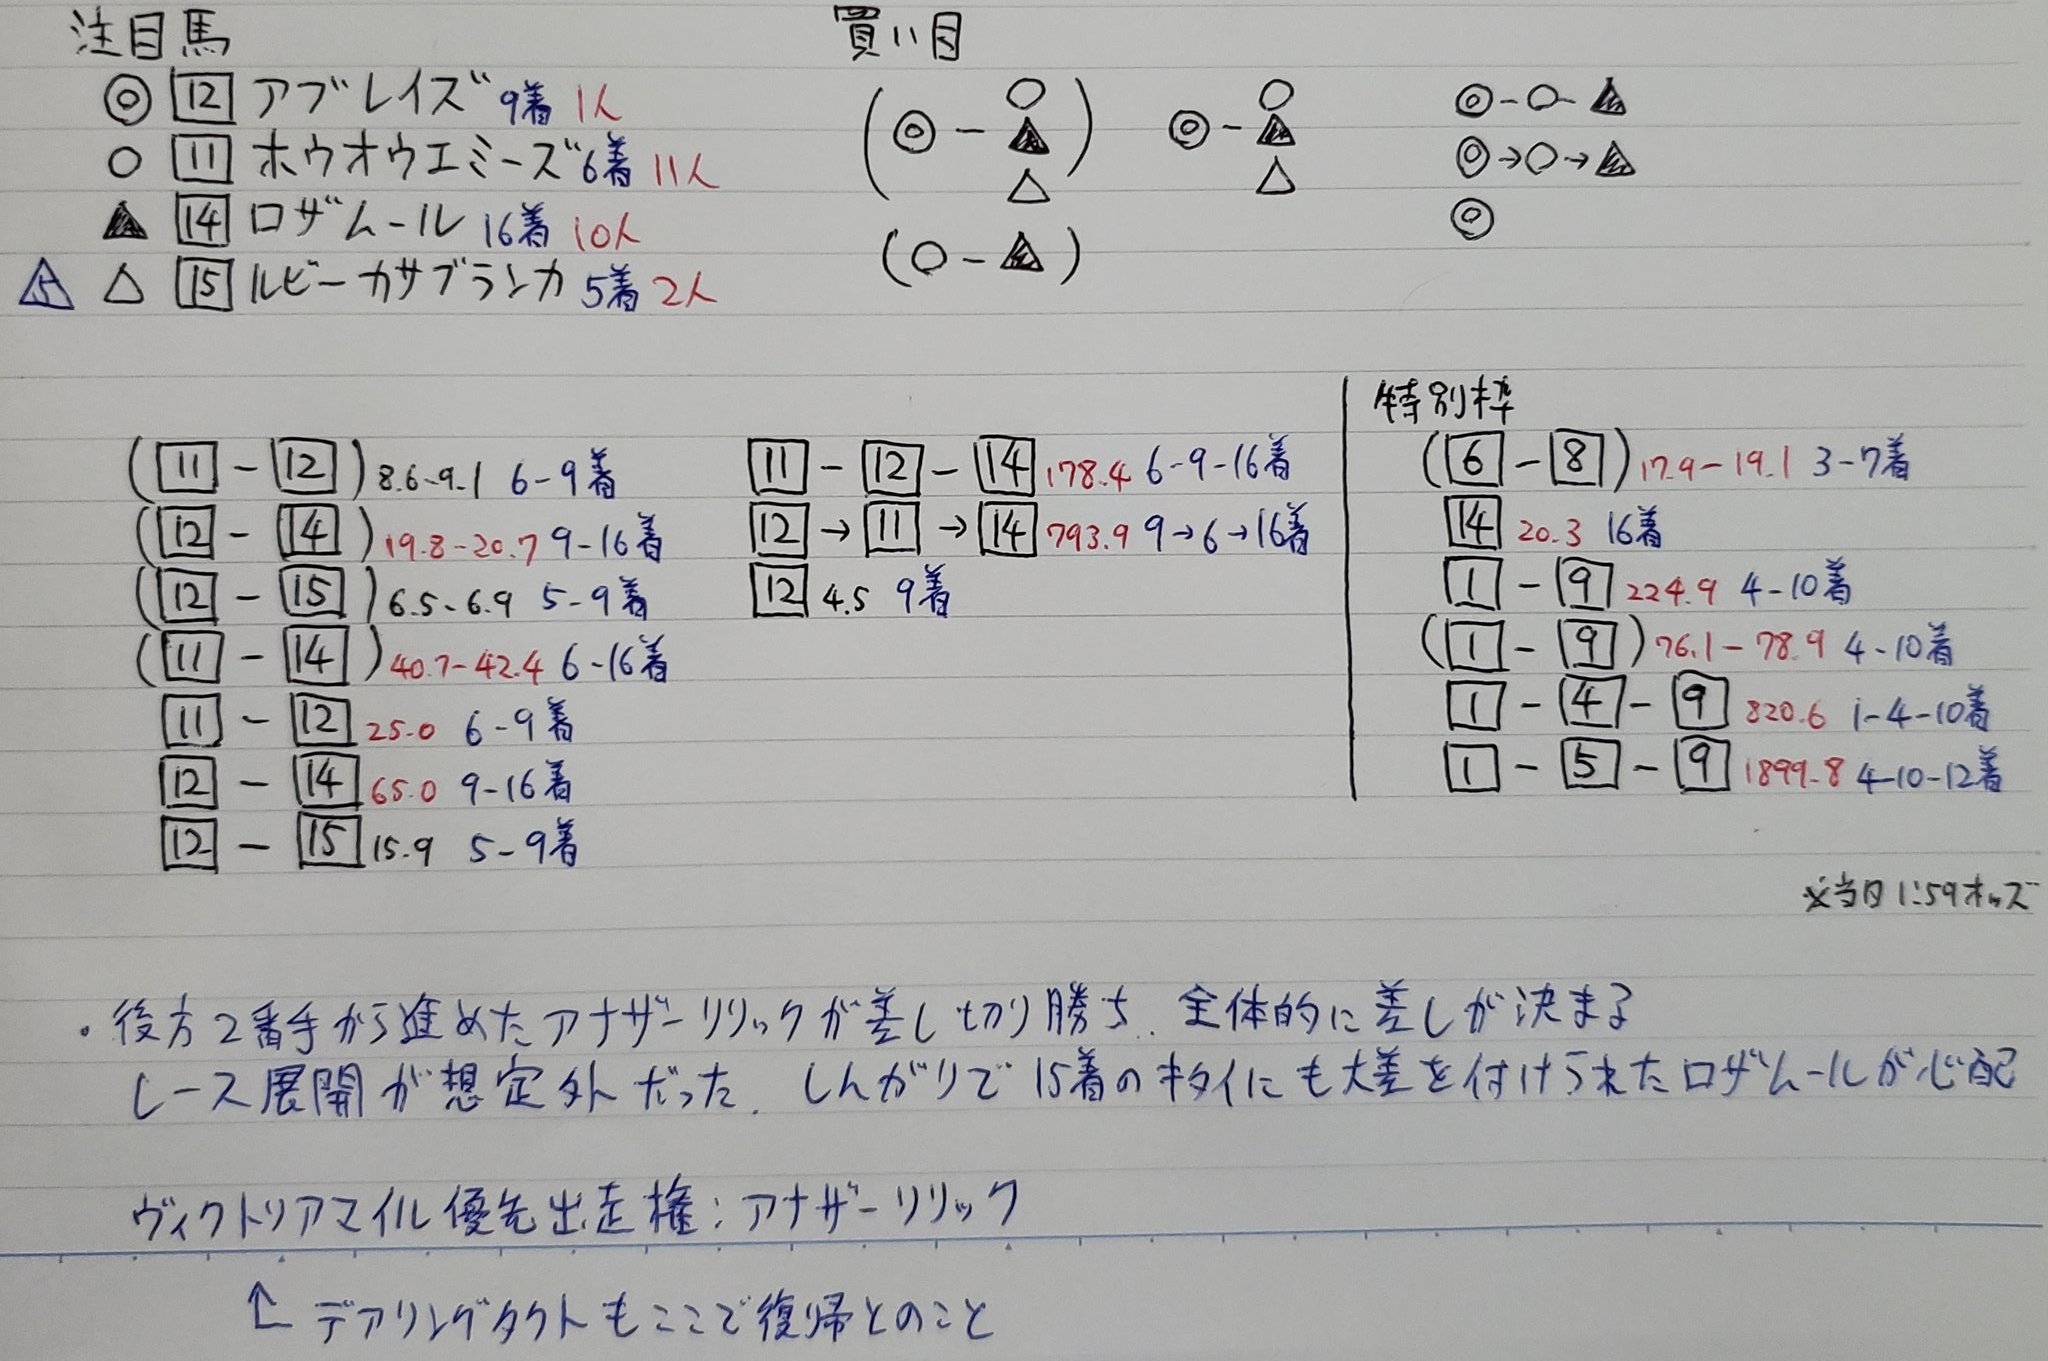 注目馬
◎ 12 アブレイズ 9着 1人
○ 11 ホウオウエミーズ 6着 11人
▲ 14 ロザムール 16着 10人
△5 △ 15 ルビーカサブランカ 5着 2人
買い目
(◎-○▲△)
(○-▲)
◎-○▲△
◎-○-▲
◎→○→▲
◎
(11-12) 8.6-9.1 6-9着
(12-14) 19.8-20.7 9-16着
(12-15) 6.5-6.9 5-9着
(11-14) 40.7-42.4 6-16着
11-12 25.0 6-9着
12-14 65.0 9-16着
12-15 15.9 5-9着
11-12-14 178.4 6-9-16着
12→11→14 793.9 9→6→16着
12 4.5 9着
特別枠
(6-8) 17.9-19.1 3-7着
14 20.3 16着
1-9 224.9 4-10着
(1-9) 76.1-78.9 4-10着
1-4-9 820.6 1-4-10着
1-5-9 1899.8 4-10-12着
※当日1:59オッズ
・後方2番手から進めたアナザーリリックが差し切り勝ち. 全体的に差しが決まる
レース展開が想定外だった. しんがりで15着のキタイにも大差を付けられたロザムールが心配
ヴィクトリアマイル優先出走権:アナザーリリック
↑ デアリングタクトもここで復帰とのこと